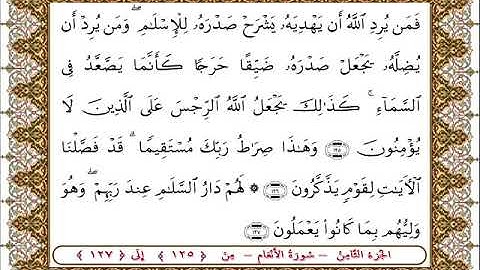 فَمَن يُرِدِ ٱللَّهُ أَن يَهْدِيَهُۥ يَشْرَحْ صَدْرَهُۥ لِلْإِسْلَٰمِ ۖ وَمَن يُرِدْ أَن
يُضِلَّهُۥ يَجْعَلْ صَدْرَهُۥ ضَيِّقًا حَرَجًا كَأَنَّمَا يَصَّعَّدُ فِي
السَّمَآءِ ۚ كَذَٰلِكَ يَجْعَلُ ٱللَّهُ ٱلرِّجْسَ عَلَى ٱلَّذِينَ لَا
يُؤْمِنُونَ ﴿١٢٥﴾ وَهَٰذَا صِرَٰطُ رَبِّكَ مُسْتَقِيمًا ۗ قَدْ فَصَّلْنَا
ٱلْأٓيَٰتِ لِقَوْمٍ يَذَّكَّرُونَ ﴿١٢٦﴾ ۞ لَهُمْ دَارُ ٱلسَّلَٰمِ عِندَ رَبِّهِمْ ۖ وَهُوَ
وَلِيُّهُم بِمَا كَانُوا۟ يَعْمَلُونَ ﴿١٢٧﴾
الجزء الثامن - سورة الأنعام - من ﴿ ١٢٥ ﴾ إلى ﴿ ١٢٧ ﴾